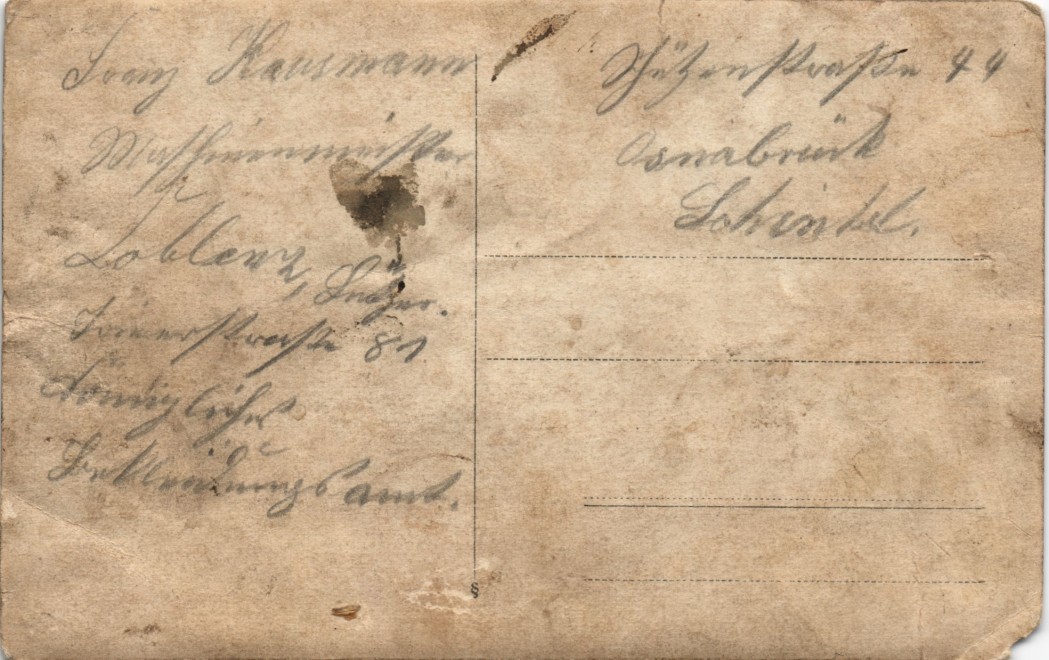 Franz Hausmann
Maschinenmeister
Coblenz,
straße 81
Königliches
Bekleidungsamt.
Schützenstraße 44
Osnabrück
Schinkel.
§